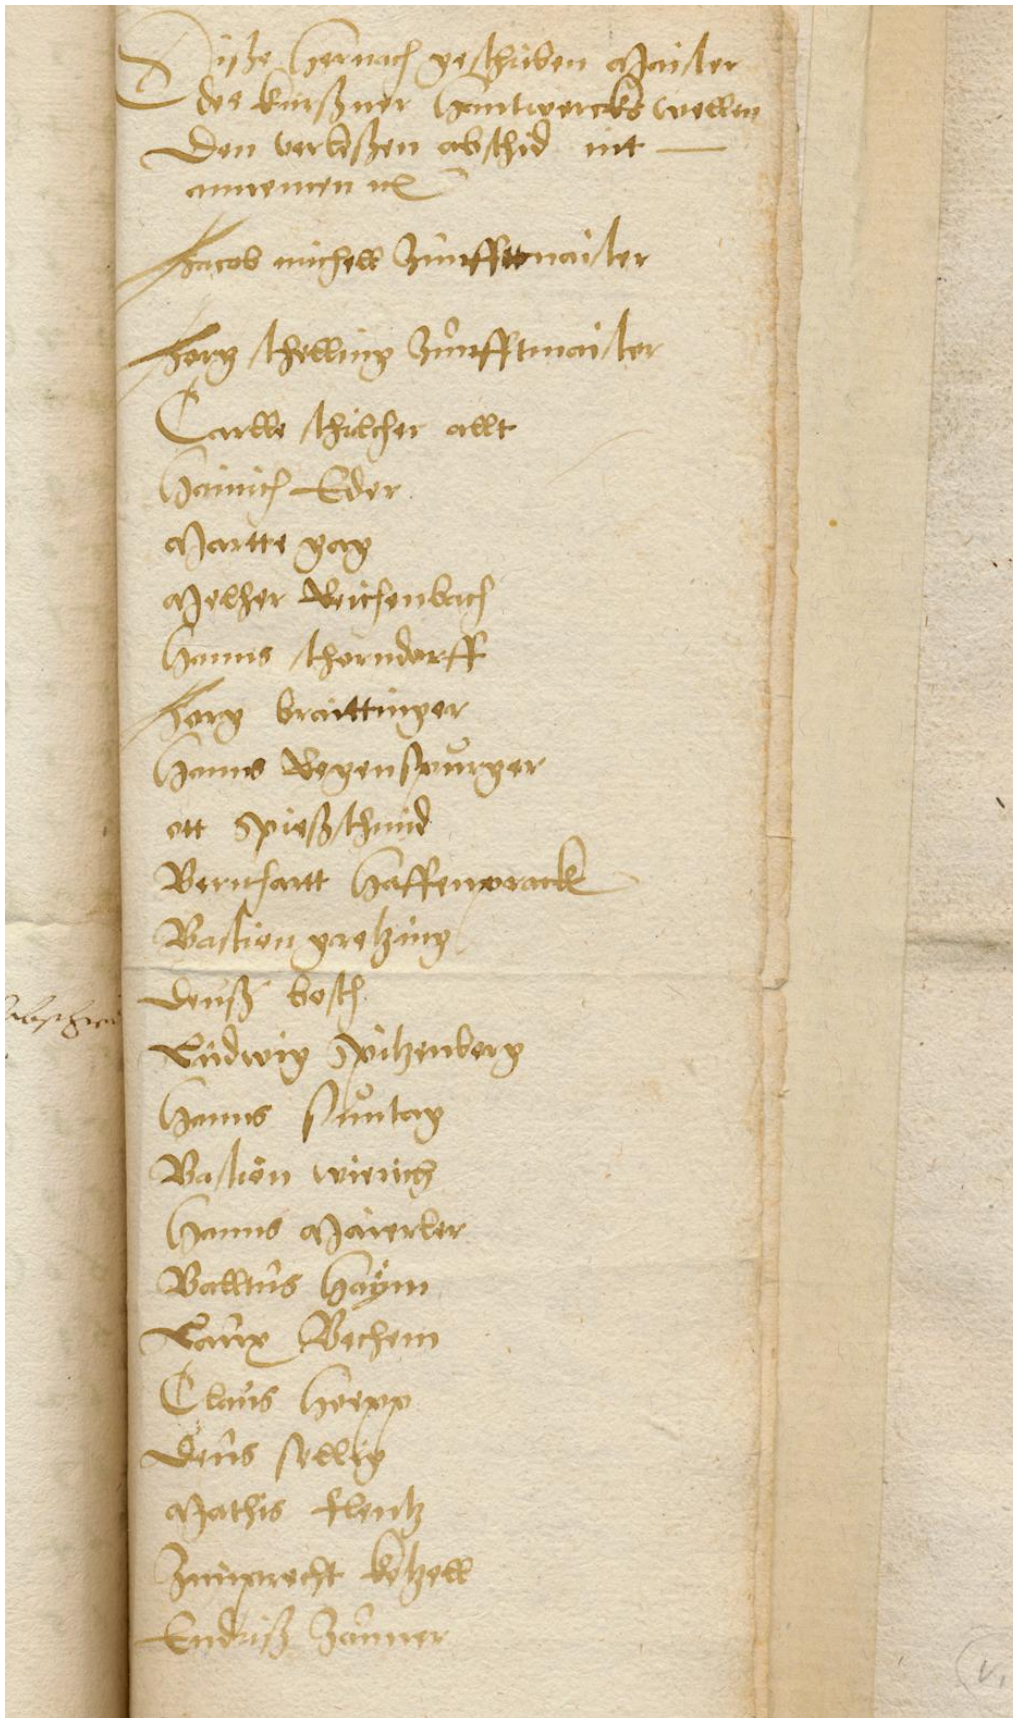 Disze hernach geschriben Maister
des kursner hanttwercks wellen
Den verleszen abschid nit
annemen etc
Jacob michell Zunfftmaister
Jorg schelling Zunfftmaister
Carlle schilcher allt
Hainrich Eder
Martte gag
Melher Reichenbach
Hanns schorndorff
Jorg braittinger
Hanns Regenspurger
ott Spieszschmid
Bernhartt Haffenprack
Bastion gretzing
Deusz bosch
Ludwig Spitzenberg
Hanns Suntag
Bastion wierich
Hanns Maierler
Balltus Haym
Laux Bechem
Claus Hoepp
Deus sellig
Mathis flentz
Zimprecht ketzell
Endrisz Zauner